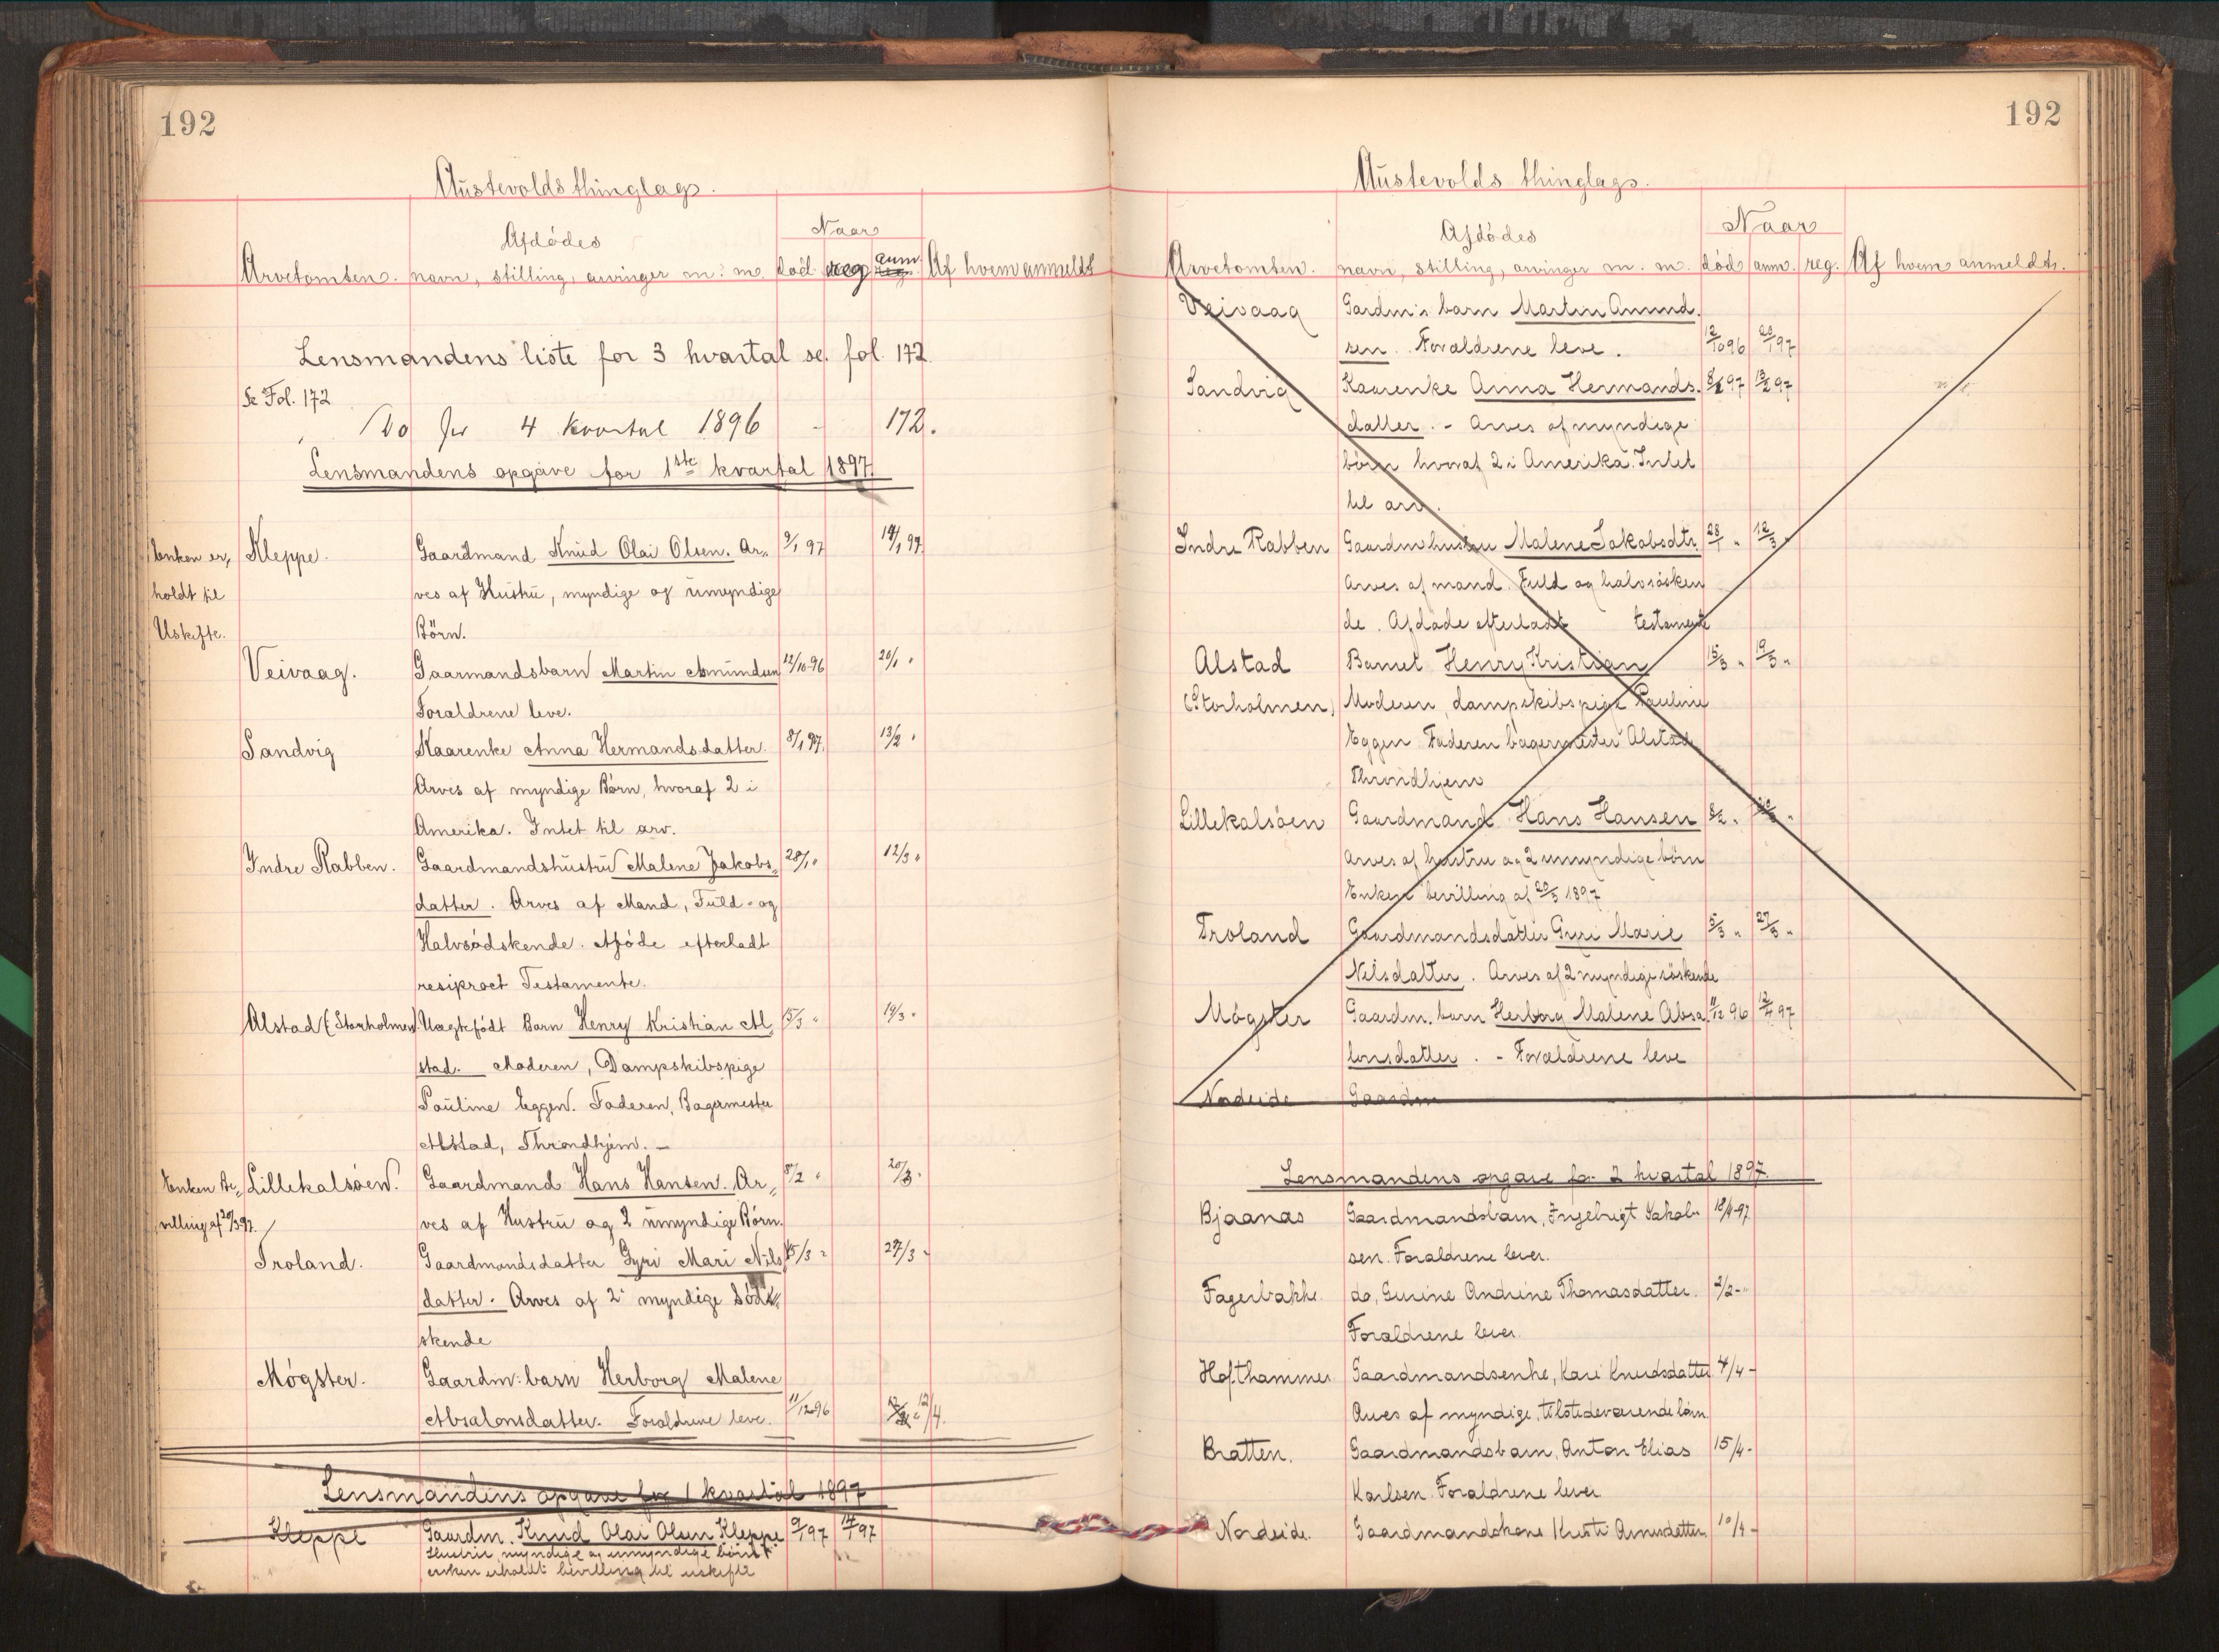 192
Austevolds thinglags.
Naar
Afdödes
Arvetomten. navn, stilling, arvinger m. m. död reg anm. Af hvem anmeldt
Lensmandens liste for 3 kvartal se. fol. 172.
Se Fol. 172
" Do for 4 kvartal 1896 - 172.
Lensmandens opgave for 1ste kvartal 1897.
Enken er, Kleppe. Gaardmand Knud Olai Olsen. Ar,, 9/1 97 19/1 97
holdt til ves af Hustru, myndige og umyndige
Uskifte. Börn.
Veivaag. Gaarmandsbarn Martin Amundsen 12/10 96 20/1 "
Foraldrene leve.
Sandvig Kaarenke Anna Hermandsdatter. 8/1 97. 13/2 "
Arves af myndige Börn, hvoraf 2 i
Amerika. Intet til arv.
Indre Rabben. Gaardmandshustru Malene Jakobs, 28/1 " 12/3 "
datter. Arves af Mand, Fuld- og
Halvsödskende. Afdöde efterladt
resiproct Testamente.
Alstad (Storholmen). Uægtefödt Barn Henry Kristian Al, 15/3 " 19/3 "
stad. Moderen, Dampskibspige
Pauline Eggen. Faderen, Bagermester
Alstad, Throndhjem. -
Enken Be,, Lillekalsöen. Gaardmand Hans Hansen. Ar,, 8/2 " 20/3 "
villing af 20/3 97. ves af Hustru og 2 umyndige Börn.
Troland. Gaardmandsdatter Gyri Mari Nils 15/3 " 27/3 "
datter. Arves af 2 myndige Söd,,
skende
Mögster. Gaardm: barn Herborg Malene
Absalonsdatter. Foraldrene leve. 11/12 96 12/4.
Lensmandens opgave for 1 kvartal 1897
Kleppe Gaardm. Knud Olai Olsen Kleppe 9/1 97 19/1 97
Hustru, myndige og umyndige börn
enken erholdt bevilling til uskifte
192
Austevolds thinglags.
Naar
Afdödes
Arvetomten. navn, stilling, arvinger m. m. död anm. reg. Af hvem anmeldt.
Veivaag Gardm's barn Martin Amund.
sen. Foraldrene leve. 12/10 96 20/1 97
Sandvig Kaarenke Anna Hermands. 8/1 97 13/2 97
datter. - Arves af myndige
börn hvoraf 2 i Amerika. Intet
til arv.
Indre Rabben Gaardmhustru Malene Jakobsdtr. 28/1 " 12/3 "
Arves af mand. Fuld og halvsösken
de. Afdöde efterladt testamente
Alstad Barnet Henry Kristian 15/3 " 19/3 "
(Storholmen) Moderen, dampskibspige Pauline
Eggen Faderen bagermester Alstad
Throndhjem
Lillekalsöen Gaardmand Hans Hansen 8/2 "
Arves af hustru og 2 umyndige börn
Enken bevilling af 20/3 1897
Troland Gaardmandsdatter Guri Marie 15/3 " 27/3 "
Nilsdatter. Arves af 2 myndige söskende
Mögster Gaardm. barn Herborg Malene Absa 11/12 96 12/4 97
lonsdatter. - Forældrene leve
Nordeide Gaardm
Lensmandens opgave for 2 kvartal 1897.
Bjaanas Gaardmandsbarn, Ingebrigt Jakob- 18/4 97
sen. Foraldrene lever.
Fagerbakke. do, Gurine Andrine Thomasdatter. 2/2 - "
Foraldrene lever.
Hofthammer Gaardmandsenke, Kari Knudsdatter 4/4 -
Arves af myndige, tilstedeværende börn.
Bratten. Gaardmandsbarn, Anton Elias 15/4 -
Karlsen. Foraldrene lever
Nordeide. Gaardmandskone Kristi Arnesdatter 10/4 -